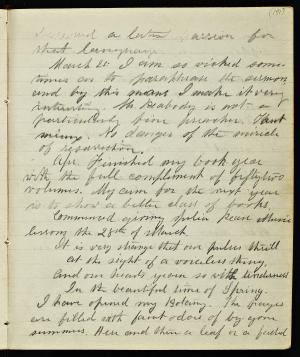 a later for
that language.
March 20 I am so wicked some-
times as to paraphrase the sermon
and by this means I make it very
Mr Peabody is not a
particularly fine preacher. Faint
No danger of the miracle
of resurrection.
Apr. Finished my book year
with the full complement of fifty two
volumes. My aim for the next year
is to show a better class of books.
Commenced giving Julia Kean Music
lessons the 28th of March
It is very strange that our pulses thrill
at the sight of a voiceless thing
and our hearts yearn so with tenderness
In the beautiful time of Spring.
I have opened my Botany. The pages
are filled with faint odors of by gone
summers. Here and there a leaf or a faded